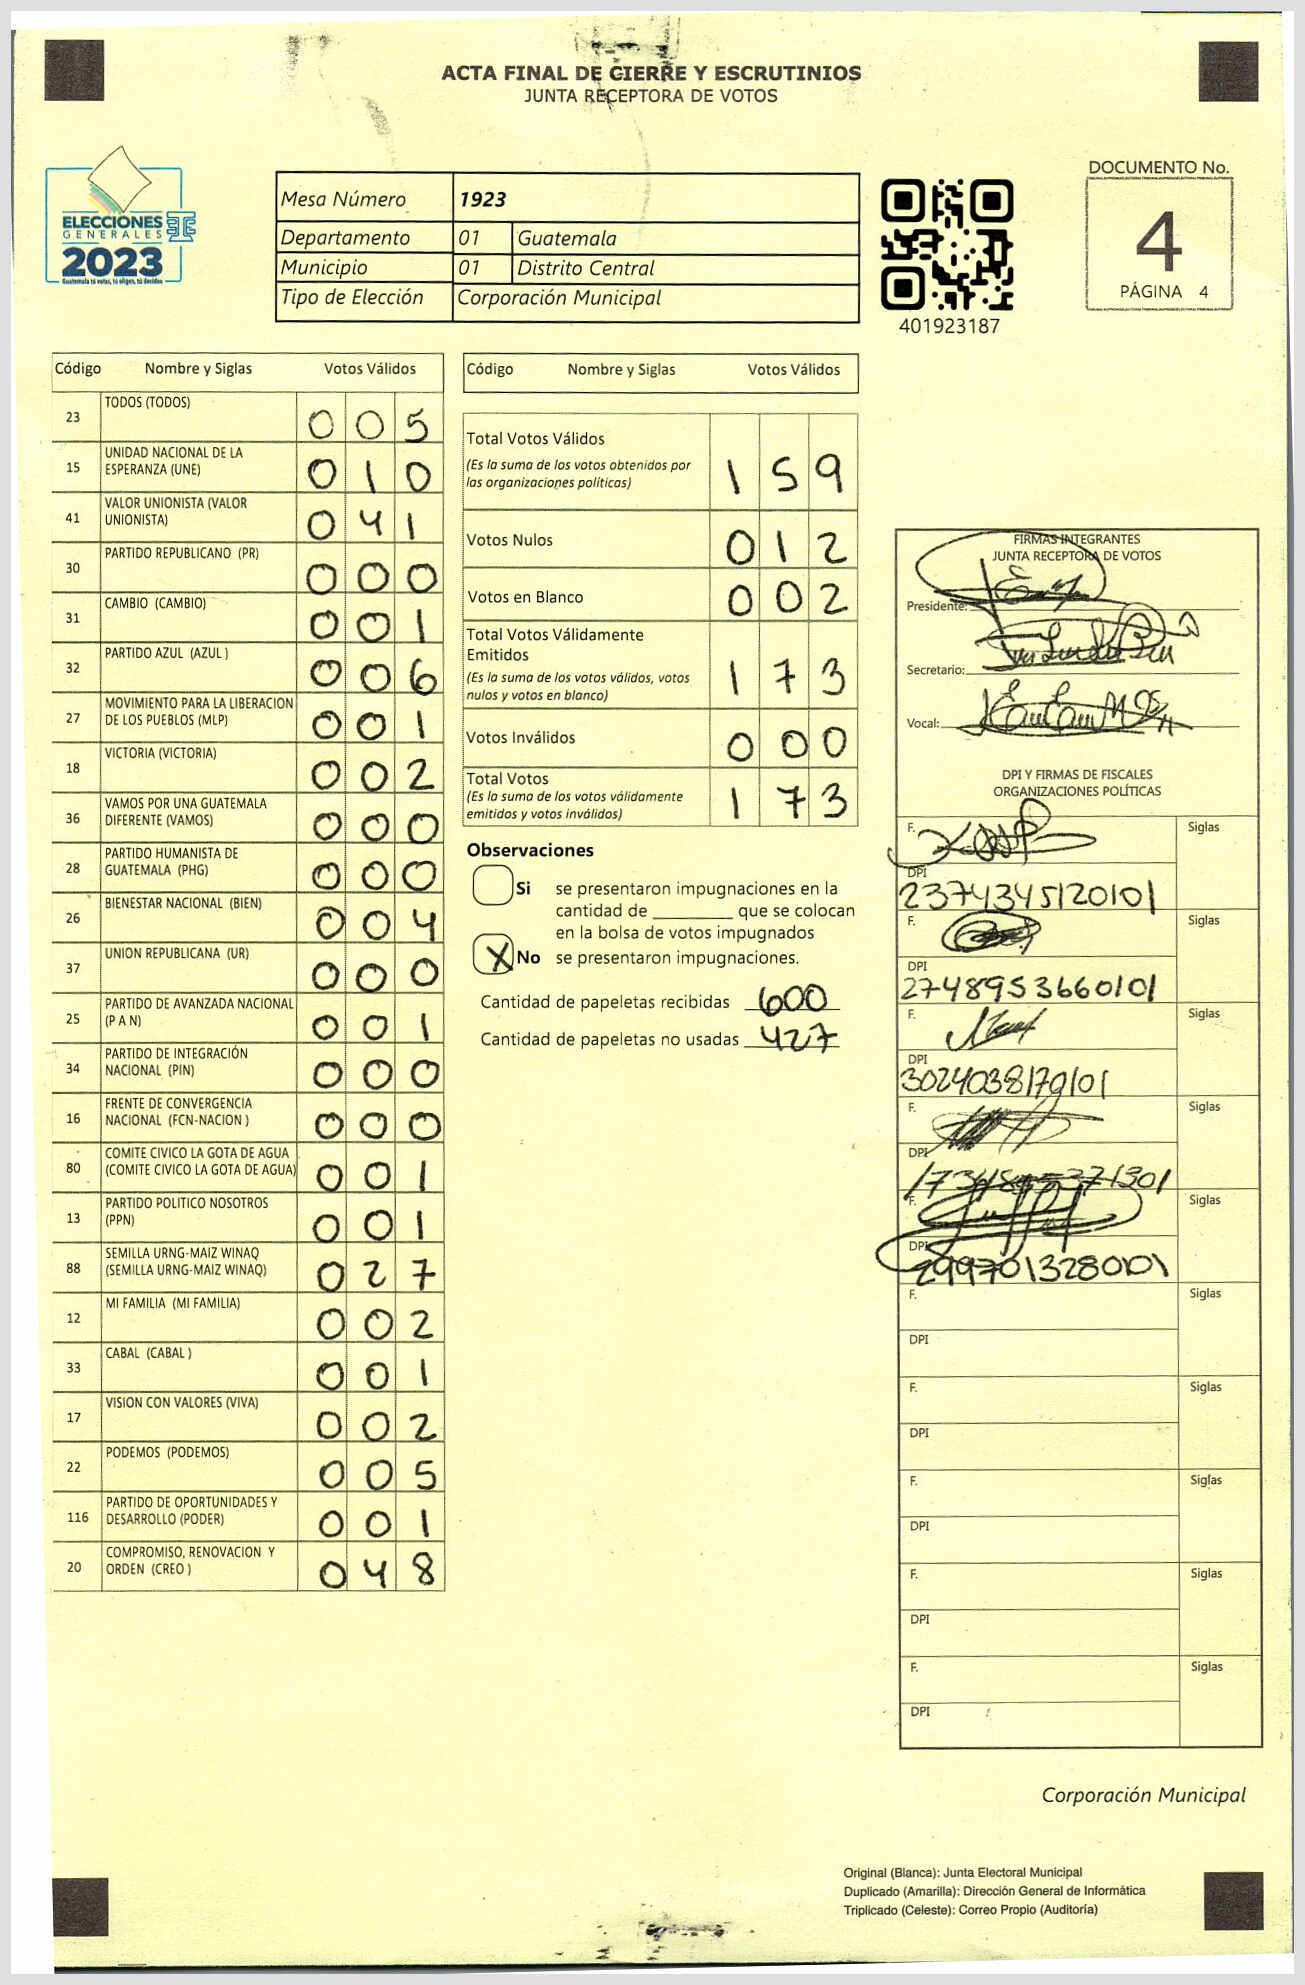 ACTA FINAL DE CIERRE Y ESCRUTINIOS
JUNTA RECEPTORA DE VOTOS
ELECCIONES
GENERALES
2023
Guatemala tú votas, tú eliges, tú decides
Mesa Número 1923
Departamento 01 Guatemala
Municipio 01 Distrito Central
Tipo de Elección Corporación Municipal
401923187
DOCUMENTO No.
4
PÁGINA 4
Código Nombre y Siglas Votos Válidos
23 TODOS (TODOS) 0 0 5
15 UNIDAD NACIONAL DE LA
ESPERANZA (UNE) 0 1 0
41 VALOR UNIONISTA (VALOR
UNIONISTA) 0 4 1
30 PARTIDO REPUBLICANO (PR) 0 0 0
31 CAMBIO (CAMBIO) 0 0 1
32 PARTIDO AZUL (AZUL ) 0 0 6
27 MOVIMIENTO PARA LA LIBERACION
DE LOS PUEBLOS (MLP) 0 0 1
18 VICTORIA (VICTORIA) 0 0 2
36 VAMOS POR UNA GUATEMALA
DIFERENTE (VAMOS) 0 0 0
28 PARTIDO HUMANISTA DE
GUATEMALA (PHG) 0 0 0
26 BIENESTAR NACIONAL (BIEN) 0 0 4
37 UNION REPUBLICANA (UR) 0 0 0
25 PARTIDO DE AVANZADA NACIONAL
(P A N) 0 0 1
34 PARTIDO DE INTEGRACIÓN
NACIONAL (PIN) 0 0 0
16 FRENTE DE CONVERGENCIA
NACIONAL (FCN-NACION ) 0 0 0
80 COMITE CIVICO LA GOTA DE AGUA
(COMITE CIVICO LA GOTA DE AGUA) 0 0 1
13 PARTIDO POLITICO NOSOTROS
(PPN) 0 0 1
88 SEMILLA URNG-MAIZ WINAQ
(SEMILLA URNG-MAIZ WINAQ) 0 2 7
12 MI FAMILIA (MI FAMILIA) 0 0 2
33 CABAL (CABAL ) 0 0 1
17 VISION CON VALORES (VIVA) 0 0 2
22 PODEMOS (PODEMOS) 0 0 5
116 PARTIDO DE OPORTUNIDADES Y
DESARROLLO (PODER) 0 0 1
20 COMPROMISO, RENOVACION Y
ORDEN (CREO ) 0 4 8
Código Nombre y Siglas Votos Válidos
Total Votos Válidos
(Es la suma de los votos obtenidos por
las organizaciones políticas) 1 5 9
Votos Nulos 0 1 2
Votos en Blanco 0 0 2
Total Votos Válidamente
Emitidos
(Es la suma de los votos válidos, votos
nulos y votos en blanco) 1 7 3
Votos Inválidos 0 0 0
Total Votos
(Es la suma de los votos válidamente
emitidos y votos inválidos) 1 7 3
Observaciones
Si se presentaron impugnaciones en la
cantidad de ________ que se colocan
en la bolsa de votos impugnados
X No se presentaron impugnaciones.
Cantidad de papeletas recibidas 600
Cantidad de papeletas no usadas 427
FIRMAS INTEGRANTES
JUNTA RECEPTORA DE VOTOS
Presidente:
Secretario:
Vocal:
DPI Y FIRMAS DE FISCALES
ORGANIZACIONES POLÍTICAS
F. Siglas
DPI
2374345120101
F. Siglas
DPI
2748953660101
F. Siglas
DPI
3024038170101
F. Siglas
DPI
F. Siglas
DPI
2997013280101
F. Siglas
DPI
F. Siglas
DPI
F. Siglas
DPI
F. Siglas
DPI
F. Siglas
DPI
Corporación Municipal
Original (Blanca): Junta Electoral Municipal
Duplicado (Amarilla): Dirección General de Informática
Triplicado (Celeste): Correo Propio (Auditoría)